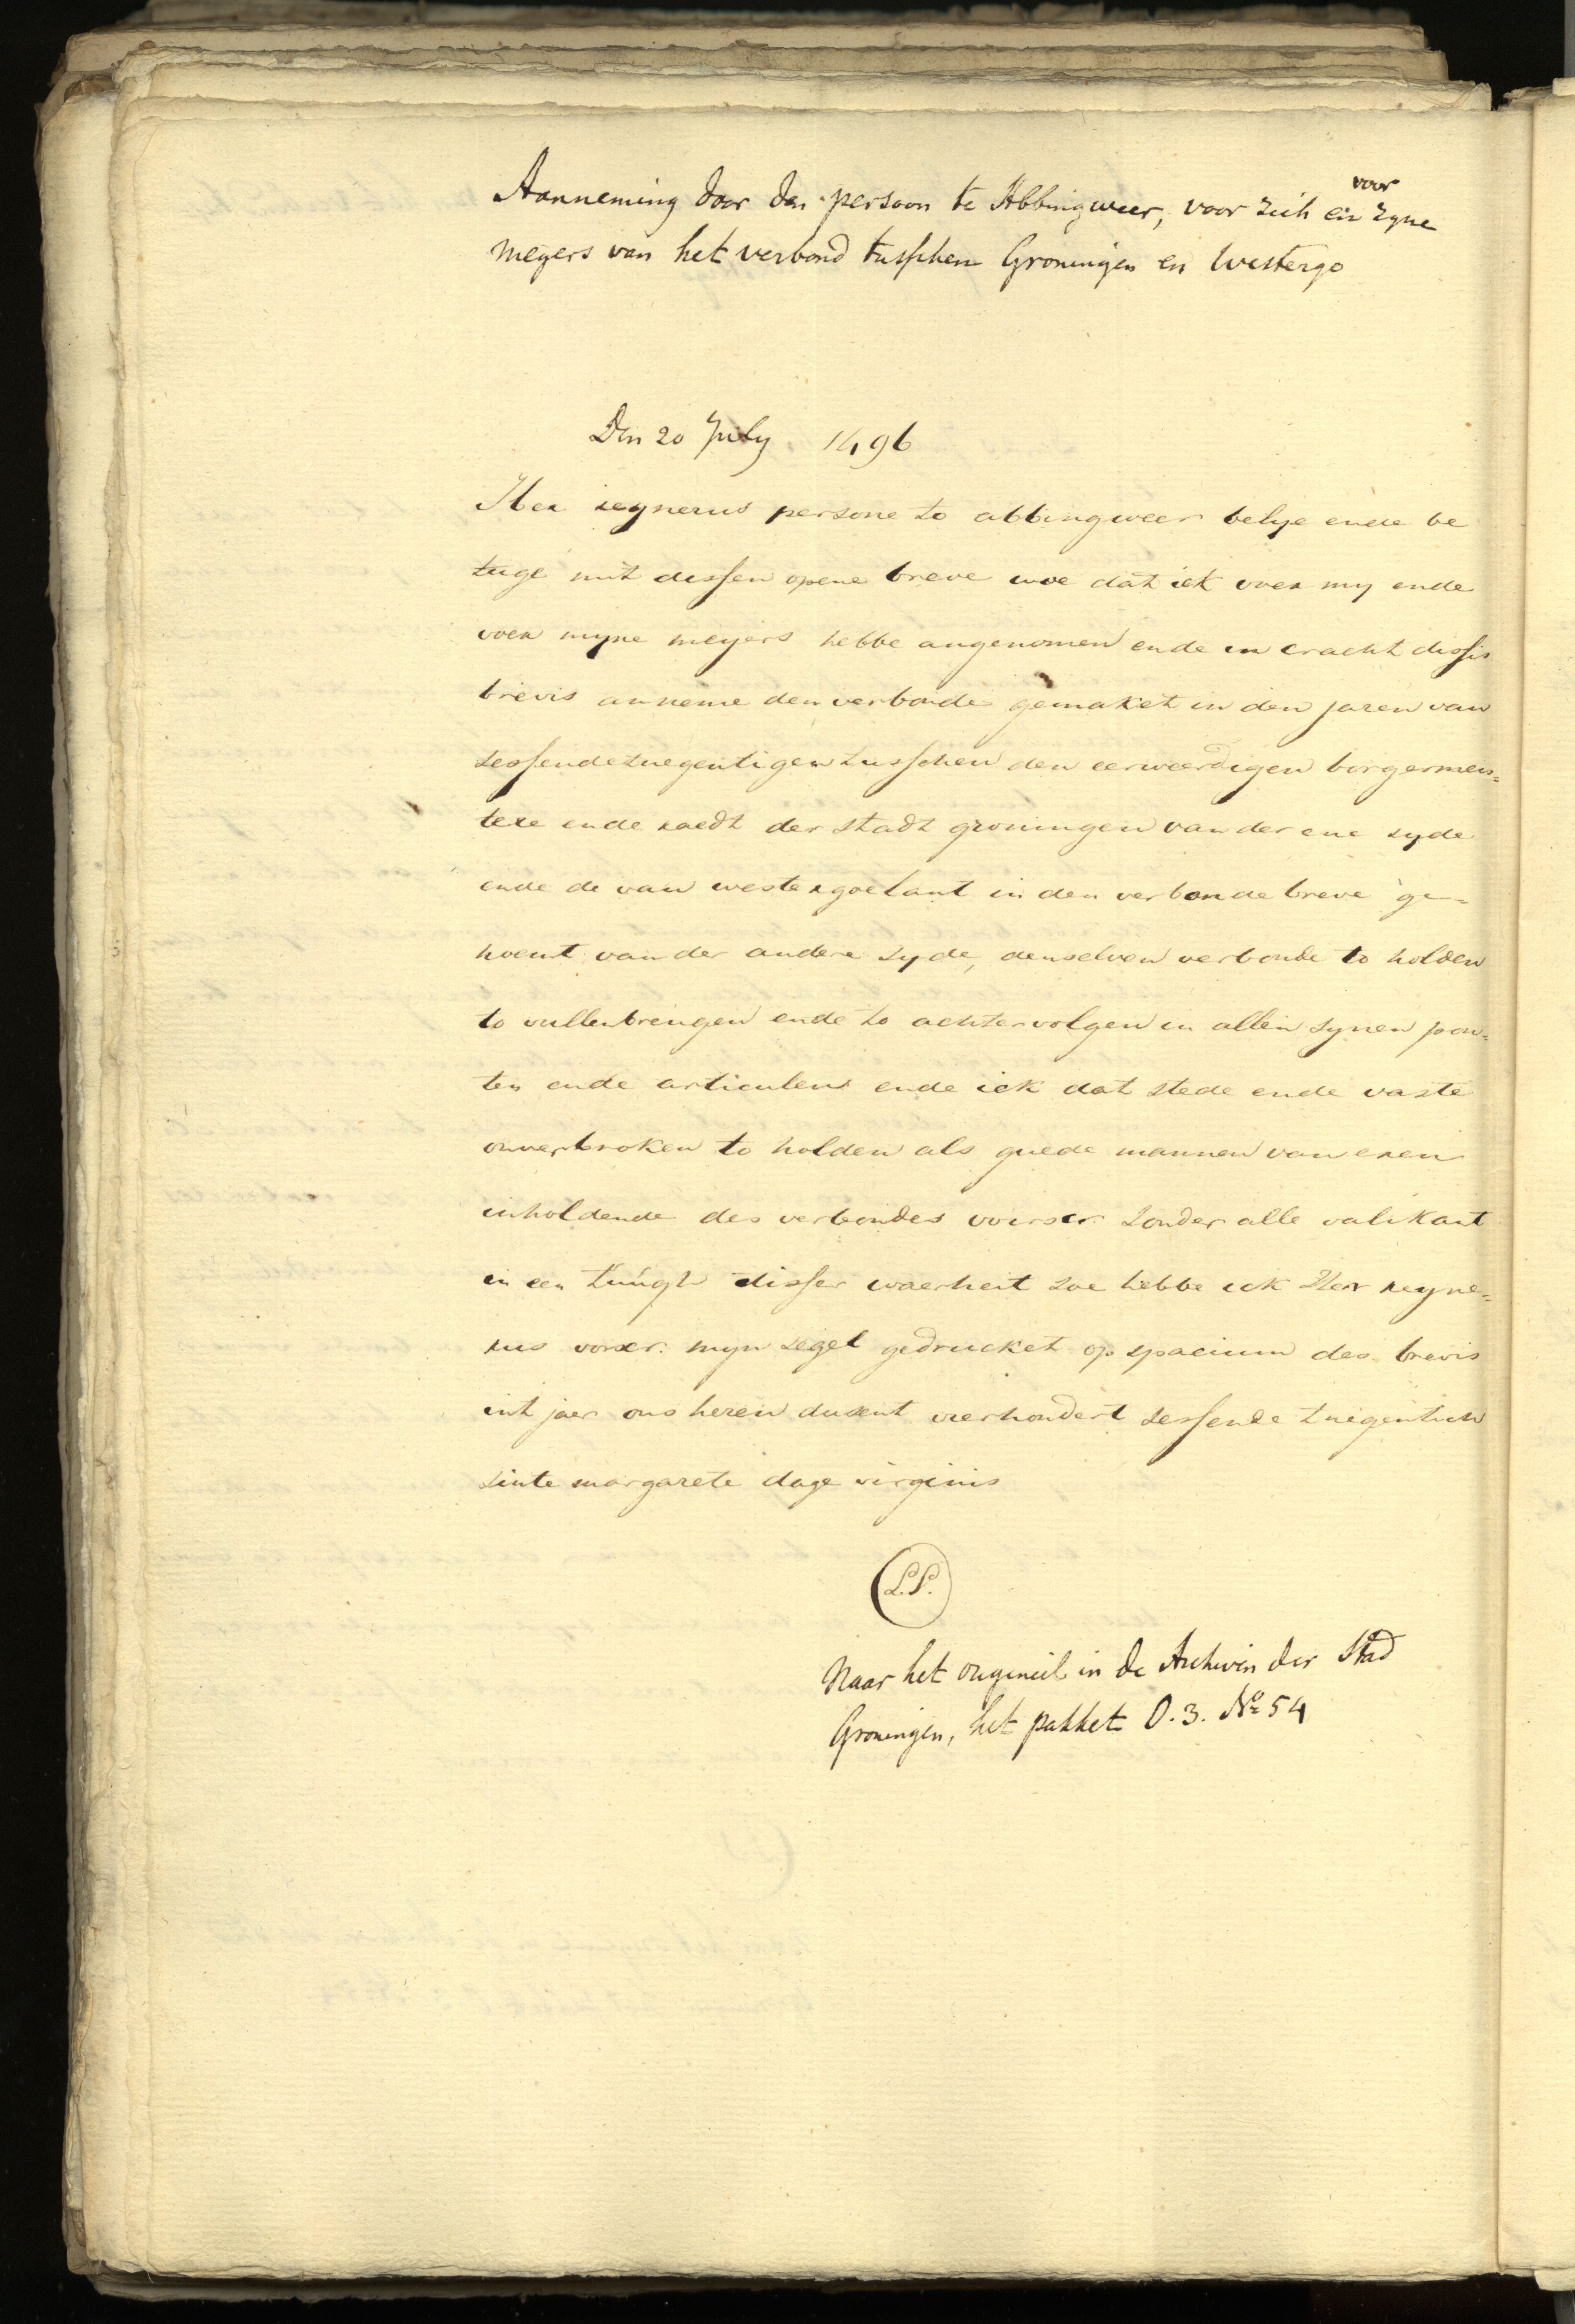 Aanneming door den persoon te Abbingweer, voor zich en voor zyne
meyers van het verbond tusschen Groningen en Westergo
Den 20 July 1496
Her reynerus persone to abbingweer belye ende be
tuge mit dessen opene breve woe dat ick voer my ende
voer myne meyers hebbe angenomen ende in cracht dissis
brevis anneme den verbonde gemaket in den jaren van
sessendetnegentigen tusschen den eerweerdigen borgermes=
tere ende raedt der stadt groningen van der ene syde
ende de van westergoelant in den verbonde breve ge=
noemt van der andere syde, denselven verbonde to holden
to vullenbrengen ende to achtervolgen in allen synen pon=
ten ende articulens ende ick dat stede ende vaste
onverbroken to holden als guede mannen van eren
inholdende des verbondes voerscr. sonder alle valikant
in een tuugh disser waerheit soe hebbe ick Her reyne=
rus vorscr. myn segel gedrucket op spacium des brevis
int jaer ons heren dusent vierhondert sessende tnegentich
sinte margarete dage virginis
L.S.
Naar het origineel in de Archiven der Stad
Groningen, het pakket O.3. No 54